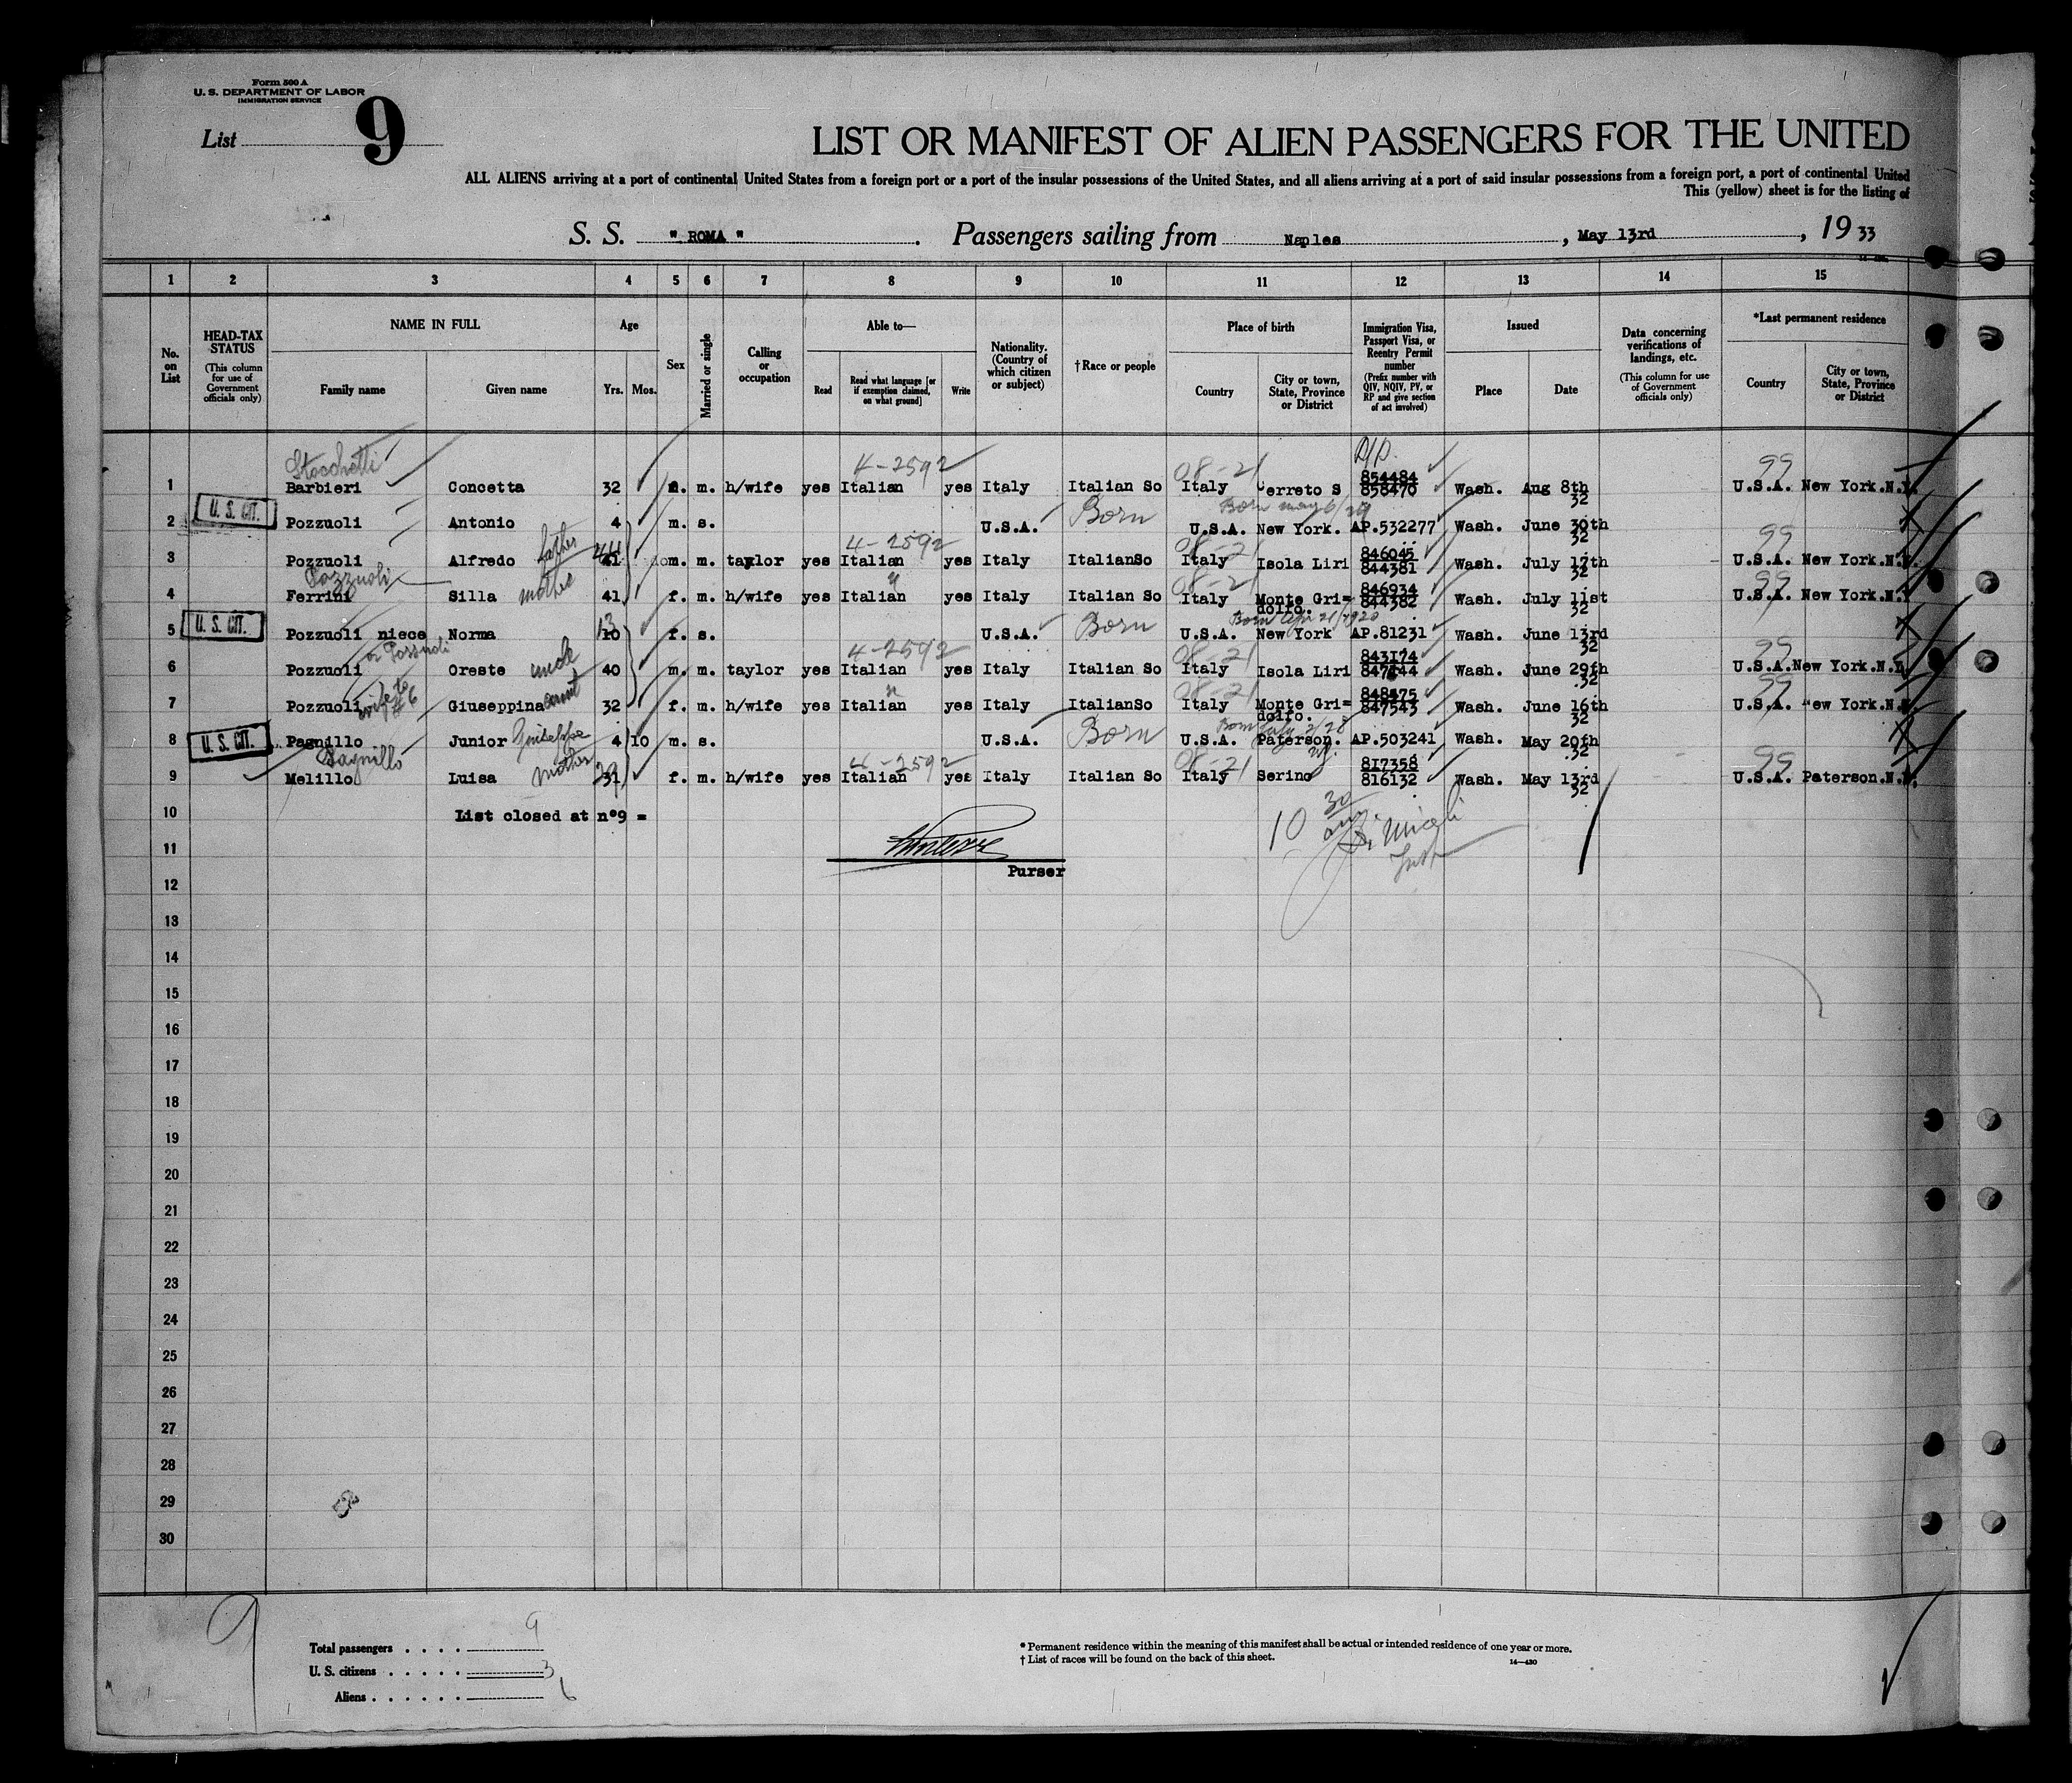 Form 500 A
U. S. DEPARTMENT OF LABOR
IMMIGRATION SERVICE
List 9
LIST OR MANIFEST OF ALIEN PASSENGERS FOR THE UNITED
ALL ALIENS arriving at a port of continental United States from a foreign port or a port of the insular possessions of the United States, and all aliens arriving at a port of said insular possessions from a foreign port, a port of continental United
This (yellow) sheet is for the listing of
S. S. " ROMA " . Passengers sailing from Naples , May 13rd , 19 33
1 2 3 4 5 6 7 8 9 10 11 12 13 14 15
No. on List
HEAD-TAX STATUS
(This column for use of Government officials only)
NAME IN FULL
Family name Given name
Age
Yrs. Mos.
Sex
Married or single
Calling or occupation
Able to—
Read Read what language [or if exemption claimed, on what ground] Write
Nationality. (Country of which citizen or subject)
†Race or people
Place of birth
Country City or town, State, Province or District
Immigration Visa, Passport Visa, or Reentry Permit number
(Prefix number with QIV, NQIV, PV, or RP and give section of act involved)
Issued
Place Date
Data concerning verifications of landings, etc.
(This column for use of Government officials only)
*Last permanent residence
Country City or town, State, Province or District
Stocchetti 4-2592 08-21 R/P. 854484 99
1 Barbieri Concetta 32 m. h/wife yes Italian yes Italy Italian So Italy erreto S 858470 Wash. Aug 8th 32 U.S.A. New York.N.Y.
U. S. CIT. Born Born may 6/29
2 Pozzuoli Antonio 4 m. s. U.S.A. U.S.A. New York. AP.532277 Wash. June 30th 32
father 44 4-2592 08-21 846045 99
3 Pozzuoli Alfredo 41 m. m. taylor yes Italian yes Italy ItalianSo Italy Isola Liri 844381 Wash. July 17th 32 U.S.A. New York.N.Y.
Pozzuoli mother " 08-21 846934 99
4 Ferrini Silla 41 f. m. h/wife yes Italian yes Italy Italian So Italy Monte Gri=dolfo. 844382 Wash. July 11st 32 U.S.A. New York.N.Y
U. S. CIT. 13 Born Born Apr 21/1920
5 Pozzuoli niece Norma 10 f. s. U.S.A. U.S.A. New York AP.81231 Wash. June 13rd 32
or Possuoli uncle 4-2592 08-21 843174 99
6 Pozzuoli Oreste 40 m. m. taylor yes Italian yes Italy Italian So Italy Isola Liri 847144 Wash. June 29th 32 U.S.A. New York.N.Y.
wife to #6 aunt " 08-21 99
7 Pozzuoli Giuseppina 32 f. m. h/wife yes Italian yes Italy ItalianSo Italy Monte Gri=dolfo. 847543 Wash. June 16th 32 U.S.A. ew York.N.Y
U. S. CIT. Guiseppe Born Born July 2/28
8 Pagnillo Junior 4 10 m. s. U.S.A. U.S.A. Paterson. N.J. AP.503241 Wash. May 20th 32
Pagnillo mother 29 4-2592 08-21 817358 99
9 Melillo Luisa 31 f. m. h/wife yes Italian yes Italy Italian So Italy Serino 816132 Wash. May 13rd 32 U.S.A. Paterson.N.J.
10 List closed at n°9 =
10 30 am
11 Insp
Purser
12
13
14
15
16
17
18
19
20
21
22
23
24
25
26
27
28
29
30
9
Total passengers . . . . 9
U. S. citizens . . . . . 3
Aliens . . . . . . 6
* Permanent residence within the meaning of this manifest shall be actual or intended residence of one year or more.
† List of races will be found on the back of this sheet.
14—430